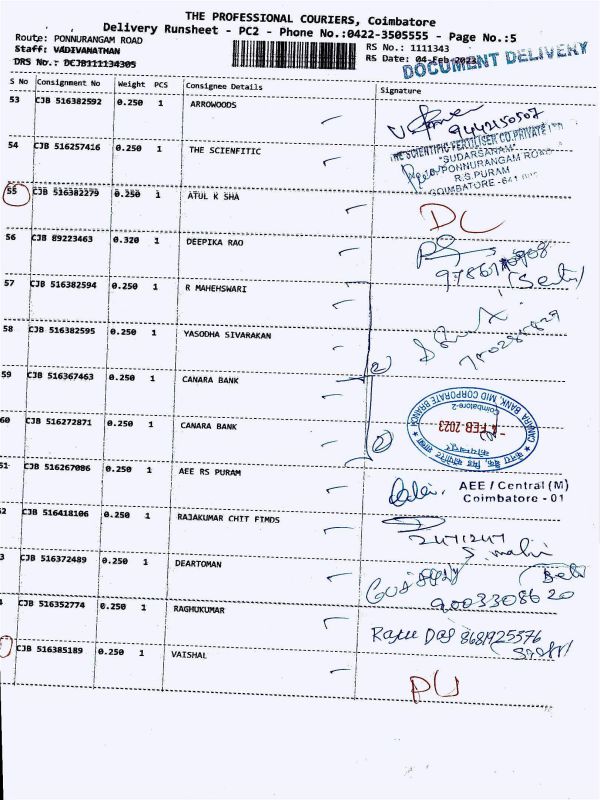 THE PROFESSIONAL COURIERS, Coimbatore
Delivery Runsheet - PC2 - Phone No.:0422-3505555 - Page No.:5
Route: PONNURANGAM ROAD
RS No.: 1111343
Staff: VADIVANATHAN
RS Date: 04-Feb-2023
DRS No.: DCJB111134305
DOCUMENT DELIVERY
S No Consignment No Weight PCS Consignee Details Signature
53 CJB 516382592 0.250 1 ARROWOODS
9442150507
54 CJB 516257416 0.250 1 THE SCIENFITIC
THE SCIENTIFIC FERTILISER CO.PRIVATE LTD
"SUDARSANAM"
PONNURANGAM ROAD
R.S.PURAM
COIMBATORE - 641 002
55 CJB 516382279 0.250 1 ATUL K SHA
DL
56 CJB 89223463 0.320 1 DEEPIKA RAO
57 CJB 516382594 0.250 1 R MAHEHSWARI
58 CJB 516382595 0.250 1 YASODHA SIVARAKAN
2
59 CJB 516367463 0.250 1 CANARA BANK
CANARA BANK, MID CORPORATE BRANCH
Coimbatore-2
4 FEB 2023
60 CJB 516272871 0.250 1 CANARA BANK
51 CJB 516267086 0.250 1 AEE RS PURAM
AEE / Central (M)
Coimbatore - 01
52 CJB 516418106 0.250 1 RAJAKUMAR CHIT FIMDS
2471247
S. mahi
3 CJB 516372489 0.250 1 DEARTOMAN
9003308620
CJB 516352774 0.250 1 RAGHUKUMAR
Raju Das 8681925576
CJB 516385189 0.250 1 VAISHAL
DU